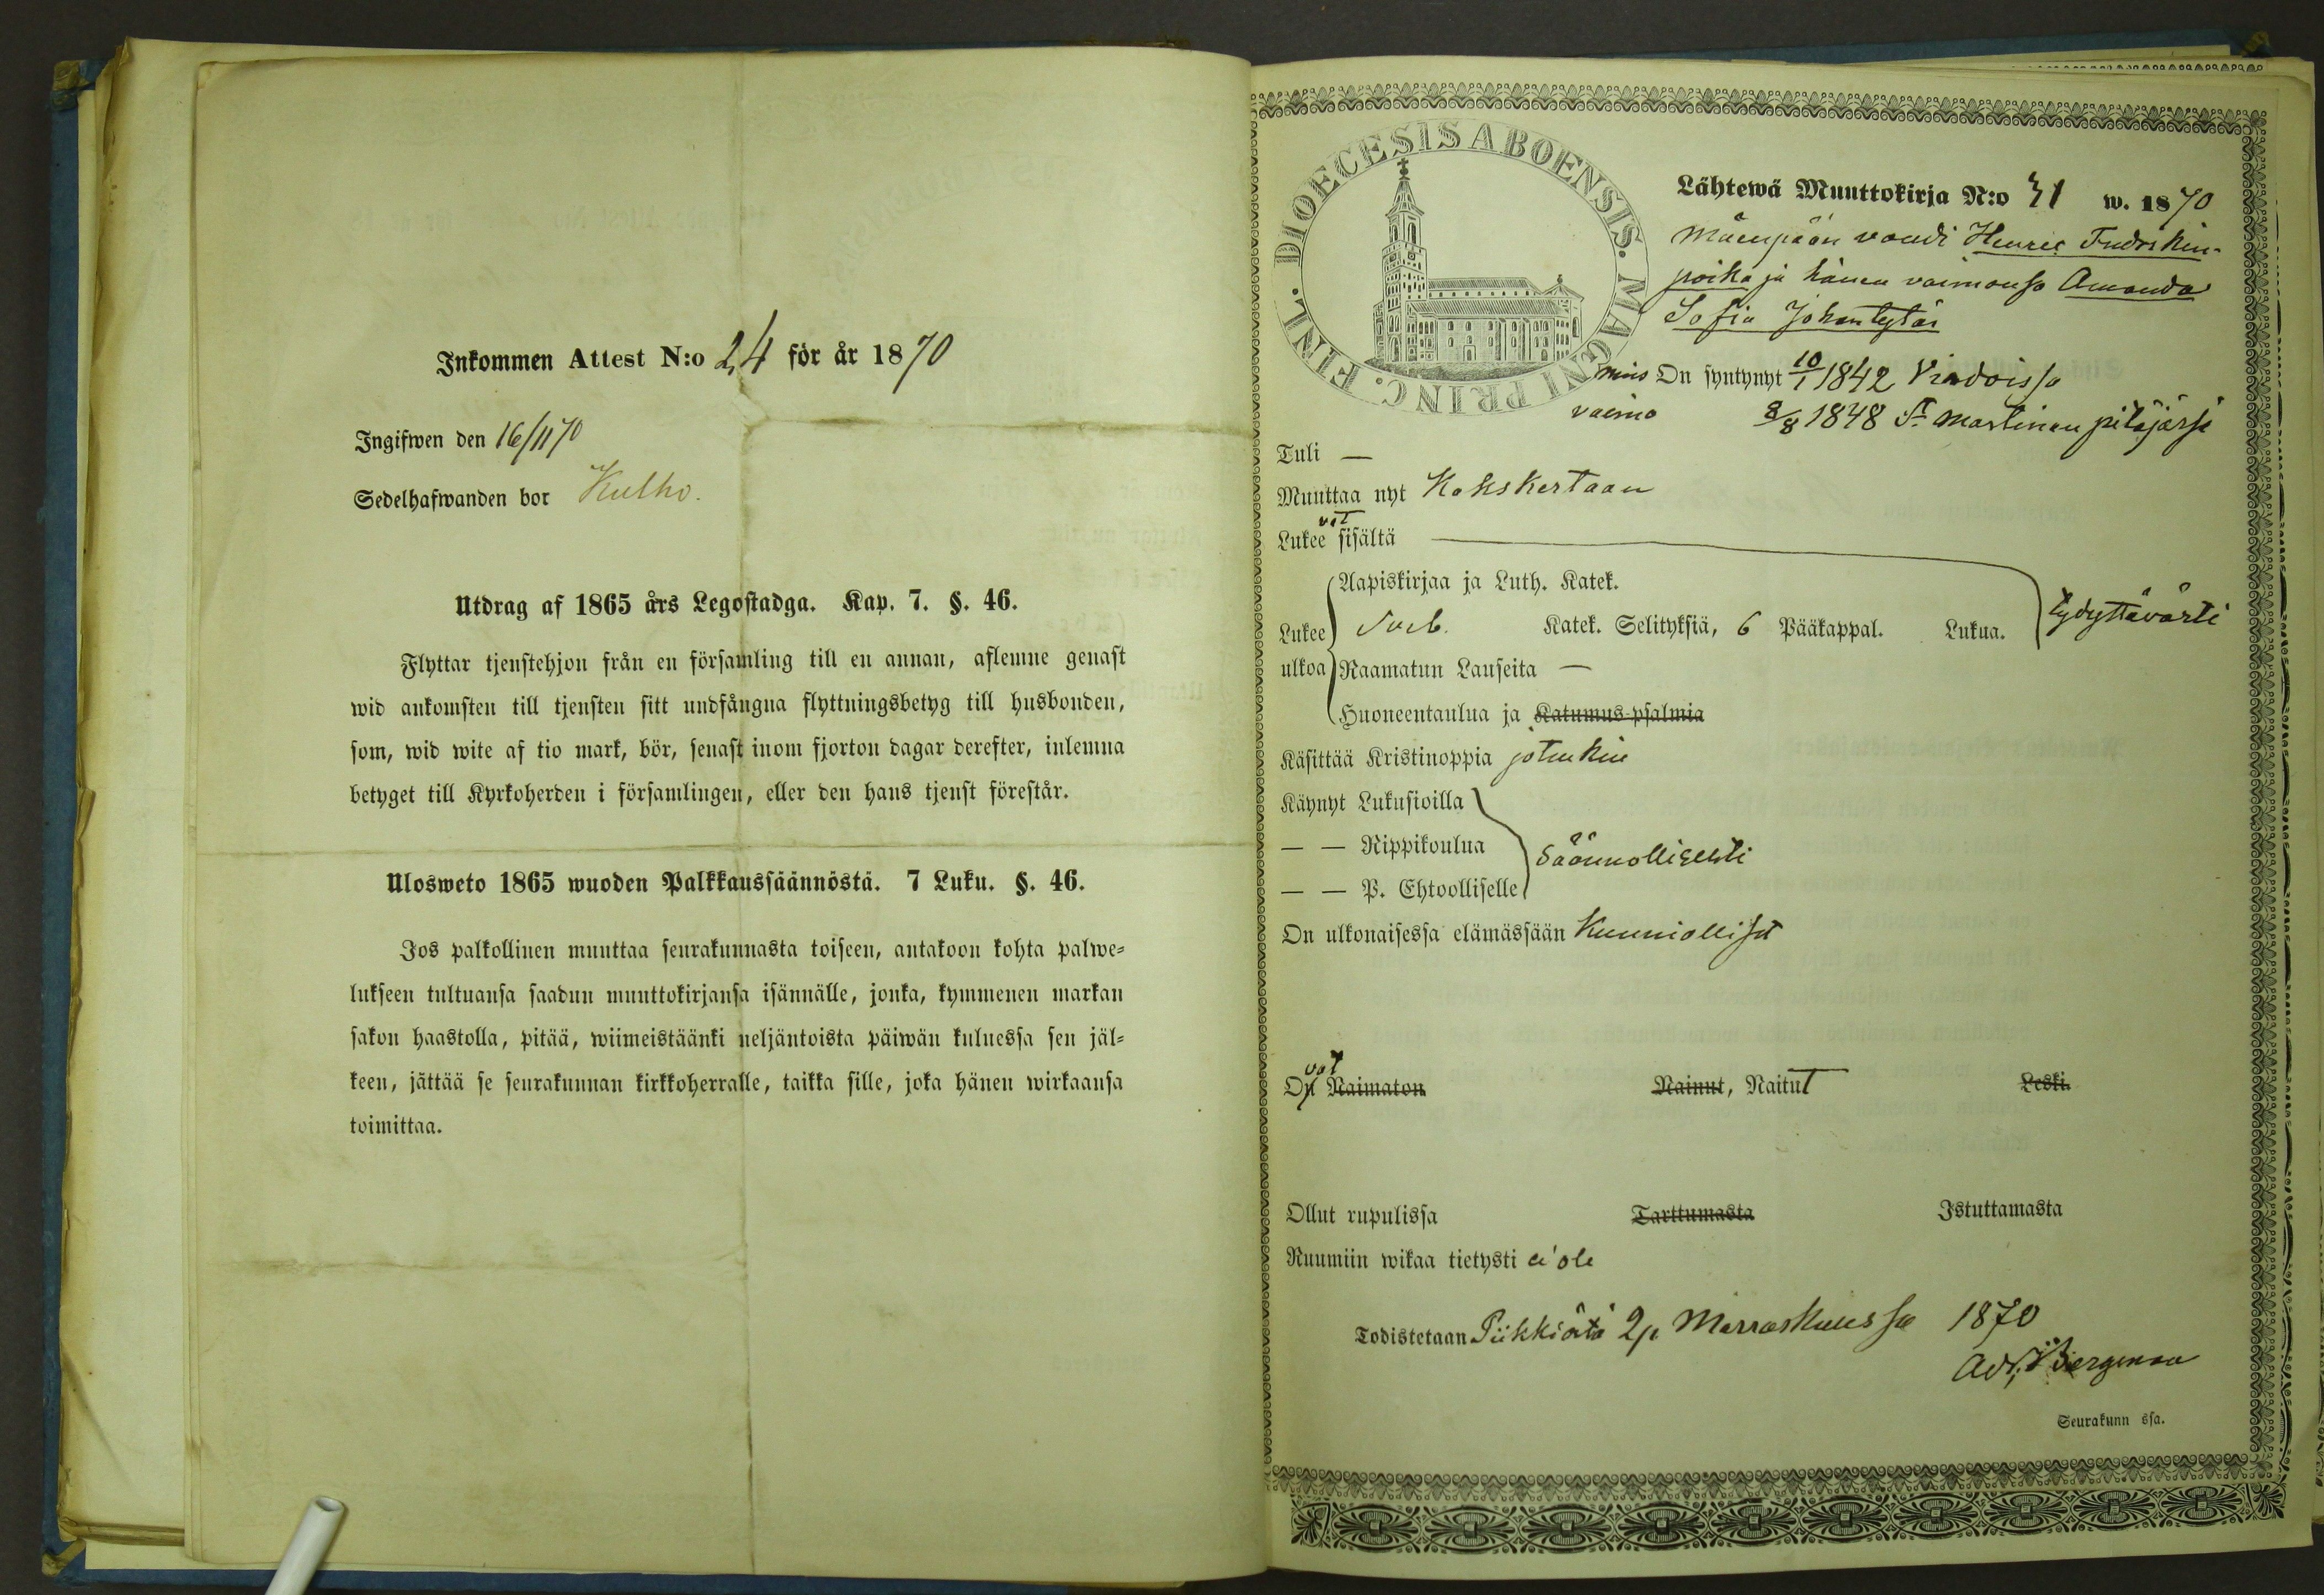 Inkommen Attest N:o 24 för år 1870
Ingifwen den 16/11 70
Sedelhafwanden bor Kulho.
Utdrag af 1865 års Legostadga. Kap. 7. §. 46.
Flyttar tjenstehjon från en församling till en annan, aflemne genast
wid ankomsten till tjensten sitt undfångna flyttningsbetyg till husbonden,
som, wid wite af tio mark, bör, senast inom fjorton dagar derefter, inlemna
betyget till Kyrkoherden i församlingen, eller den hans tjenst förestår.
Ulosweto 1865 wuoden Palkkaussäännöstä. 7 Luku. §. 46.
Jos palkollinen muuttaa seurakunnasta toiseen, antakoon kohta palwe-
lukseen tultuansa saadun muuttokirjansa isännälle, jonka, kymmenen markan
sakon haastolla, pitää, wiimeistäänki neljäntoista päiwän kuluessa sen jäl-
keen, jättää se seurakunnan kirkkoherralle, taikka sille, joka hänen wirkaansa
toimittaa.
DIOECESIS ABOENSIS. MAGNI PRINC. FINL.
Lähtewä Muuttokirja N:o 31 w. 1870
vouti Henric
poika ja hänen vaimonsa Amanda
Sofia Johantytär
mies On syntynyt 10/1 1842
vaimo 8/8 1848 St Martinan pitäjäsä
Tuli —
Muuttaa nyt Kakskertaan
vat
Lukee sisältä
Aapiskirjaa ja Luth. Katek.
Lukee ulkoa Sveb. Katek. Selityksiä, 6 Pääkappal. Lukua. tydyttävästi
Raamatun Lauseita —
Huoneentaulua ja Katumus-psalmia
Käsittää Kristinoppia jotenkin
Käynyt Lukusioilla
— — Rippikoulua Säännollisesti
— — P. Ehtoolliselle
On ulkonaisessa elämässään Kunnialliset
vat
On Naimaton Nainut, Naitut Leski.
Ollut rupulissa Tarttumasta Istuttamasta
Ruumiin wikaa tietysti ei ole
Todistetaan Piikkiöstä 2 p. Marraskuussa 1870
Bergman
Seurakunn ssa.